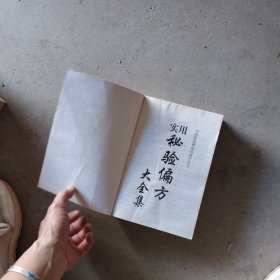 实用
秘验偏方
大全集